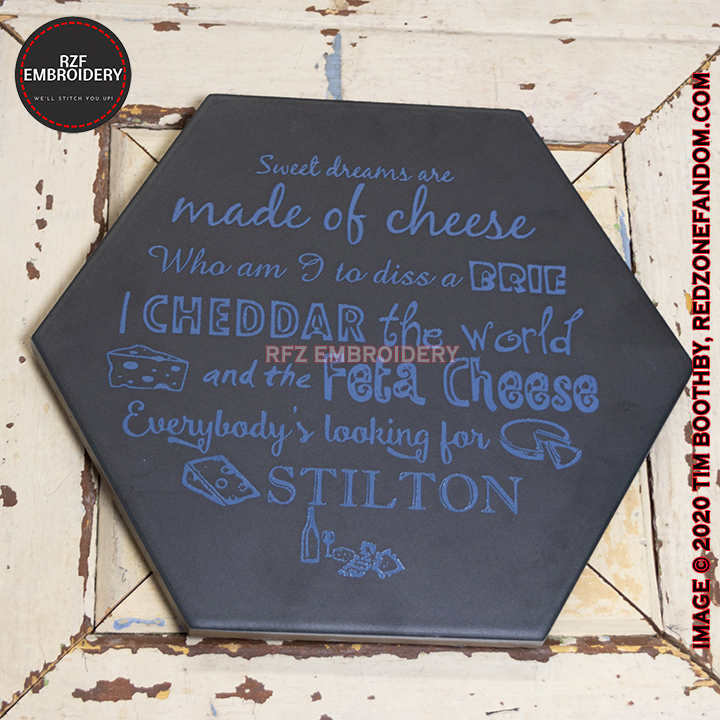 RZF
EMBROIDERY
WE'LL STITCH YOU UP!
Sweet dreams are
made of cheese
Who am I to diss a BRIE
I CHEDDAR the world
RFZ EMBROIDERY
and the Feta Cheese
Everybody's looking for
STILTON
IMAGE © 2020 TIM BOOTHBY, REDZONEFANDOM.COM